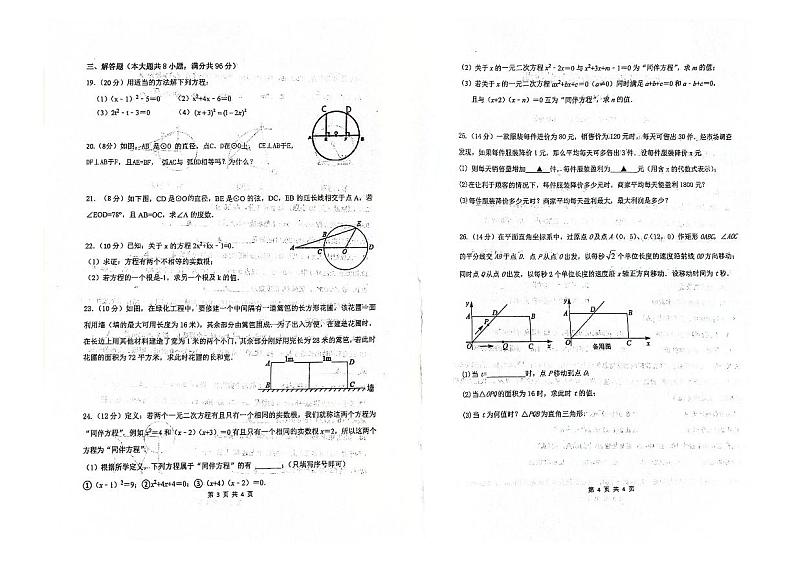 三、解答题（本大题共8小题，满分共96分）
19．（20分）用适当的方法解下列方程：
（1）（x﹣1）²﹣5=0 （2）x²+4x﹣6=0
（3）2t²﹣t﹣3=0 （4）(x+3)²=(1-2x)²
20．（8分）如图，AB是⊙O的直径，点C、D在⊙O上，CE⊥AB于E，
DF⊥AB于F，且AE=BF，弧AC与弧BD相等吗？为什么？
C D
A E O F B
21．（8分）如下图，CD是⊙O的直径，BE是⊙O的弦，DC，EB的延长线相交于点A，若
∠EOD=78°，且AB=OC，求∠A的度数．
E
B
A C O D
22．（10分）已知：关于x的方程2x²+kx﹣1=0．
（1）求证：方程有两个不相等的实数根；
（2）若方程的一个根是﹣1，求另一个根及k的值．
23．（10分）如图，在绿化工程中，要修建一个中间隔有一道篱笆的长方形花圃，该花圃一面
利用墙（墙的最大可用长度为16米），其余部分由篱笆围成，为了出入方便，在建造花圃时，
在长边上用其他材料建造了宽为1米的两个小门，其余部分刚好用完长为28米的篱笆，若此时
花圃的面积为72平方米，求此时花圃的长和宽．
A 1m 1m D
B C 墙
24．（12分）定义：若两个一元二次方程有且只有一个相同的实数根，我们就称这两个方程为
“同伴方程”．例如x²=4和（x﹣2）（x+3）=0有且只有一个相同的实数根x=2，所以这两个
方程为“同伴方程”．
（1）根据所学定义，下列方程属于“同伴方程”的有______；（只填写序号即可）
①（x﹣1）²=9；②x²+4x+4=0；③（x+4）（x﹣2）=0．
第 3 页 共 4 页
（2）关于x的一元二次方程x²﹣2x=0与x²+3x+m﹣1=0为“同伴方程”，求m的值；
（3）若关于x的一元二次方程ax²+bx+c=0（a≠0）同时满足a+b+c=0和a﹣b+c=0，
且与（x+2）（x﹣n）=0互为“同伴方程”，求n的值．
25．（14分）一款服装每件进价为80元，销售价为120元时，每天可售出30件，经市场调查
发现，如果每件服装降价1元，那么平均每天可多售出3件．设每件服装降价x元．
（1）则每天销售量增加 ▲ 件，每件服装盈利为 ▲ 元（用含x的代数式表示）；
（2）在让利于顾客的情况下，每件服装降价多少元时，商家平均每天能盈利1800元？
（3）每件服装降价多少元时？商家平均每天盈利最大，最大利润是多少？
26．（14分）在平面直角坐标系中，过原点O及点A（0，5）、C（12，0）作矩形OABC，∠AOC
的平分线交AB于点D．点P从点O出发，以每秒√2个单位长度的速度沿射线OD方向移动；
同时点Q从点O出发，以每秒2个单位长度的速度沿x轴正方向移动．设移动时间为t秒．
y A D B P O Q C x
y A D B O C x
备用图
（1）当t=______时，点P移动到点D；
（2）当△OPQ的面积为16时，求此时t的值；
（3）当t为何值时？△PQB为直角三角形．
第 4 页 共 4 页